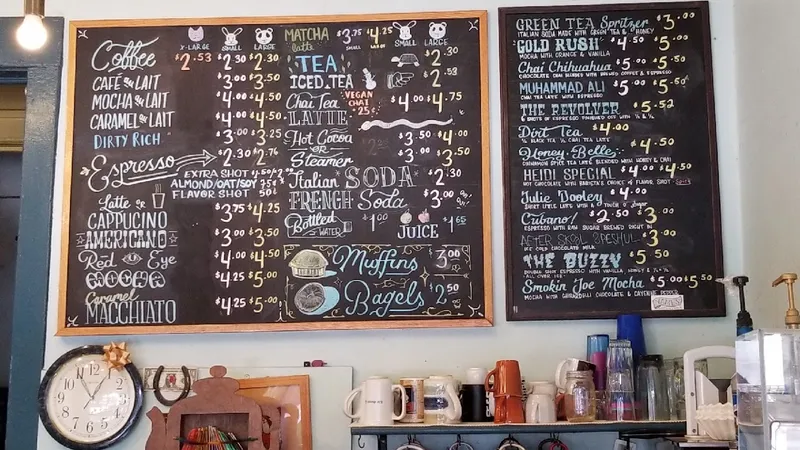 X-LARGE SMALL LARGE
Coffee $2.53 $2.30 $2.30
CAFÉ au LAIT $3.00 $3.50
MOCHA au LAIT $4.00 $4.50
CARAMEL au LAIT $4.00 $4.50
DIRTY RICH $3.00 $3.25
Espresso $2.30 $2.76
EXTRA SHOT
ALMOND/OAT/SOY 75¢
FLAVOR SHOT 50¢
Latte $3.75 $4.25
CAPPUCINO
AMERICANO $3.00 $3.50
Red Eye
MOCHA $4.25 $5.00
Caramel
MACCHIATO $4.25 $5.00
MATCHA
latte $3.75 $4.25
SMALL LARGE
TEA $2.30
ICED TEA $2.53
Chai Tea
LATTE
VEGAN
CHAI
+25¢
$4.00 $4.75
Hot Cocoa $3.50 $4.00
OR
Steamer $3.00 $3.50
Italian SODA $2.30
FRENCH Soda $3.00
Bottled
WATER $1.00
JUICE $1.65
Muffins $3.00
Bagels $2.50
GREEN TEA Spritzer $3.00
ITALIAN SODA MADE WITH GREEN TEA & HONEY
GOLD RUSH $4.50 $5.00
MOCHA WITH ORANGE & VANILLA
Chai Chihuahua $5.00 $5.50
CHOCOLATE CHAI BLENDED WITH BREWED COFFEE & ESPRESSO
MUHAMMAD ALI $5.00 $5.50
CHAI TEA LATTE WITH ESPRESSO
THE REVOLVER $5.52
Dirt Tea $4.00
Honey Belle $4.00 $4.50
CINNAMON SPICE TEA LATTE BLENDED WITH HONEY & CHAI
HEIDI SPECIAL $4.00 $4.50
HOT CHOCOLATE WITH BARISTA'S CHOICE OF FLAVOR SHOT
Julie Dooley $4.00
Cubano! $2.50 $3.00
ESPRESSO WITH RAW SUGAR BREWED RIGHT IN
AFTER SKOOL SPESHUL $3.00
ICE COLD CHOCOLATE MILK
THE BUZZY $3.50 $5.50
ALL OVER ICE!
Smokin Joe Mocha $5.00 $5.50
MOCHA WITH GHIRARDELLI CHOCOLATE & CAYENNE PEPPER